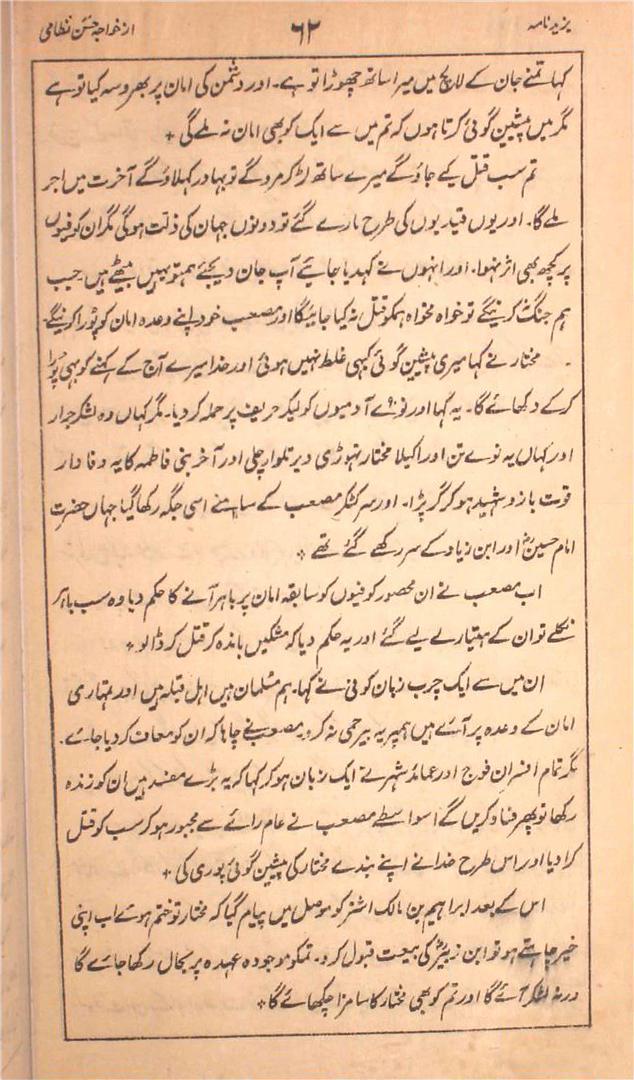 یزید نامہ ۶۲ از خواجہ حسن نظامی
کہا تمنے جان کے لالچ میں میرا ساتھ چھوڑا تو ہے۔ اور دشمن کی امان پر بھروسہ کیا تو ہے
مگر میں پیشین گوئی کرتا ہوں کہ تم میں سے ایک کو بھی امان نہ ملے گی +
تم سب قتل کیے جاؤ گے میرے ساتھ لڑ کر مرو گے تو بہادر کہلاؤ گے آخرت میں اجر
ملے گا۔ اور یوں قیدیوں کی طرح مارے گئے تو دونوں جہان کی ذلت ہوگی مگر ان کوفیوں
پر کچھ بھی اثر نہوا۔ اور انہوں نے کہدیا جائیے آپ جان دیجئے ہمتو یہیں بیٹھے ہیں جب
ہم جنگ نہ کرینگے تو خواہ مخواہ ہمکو قتل نہ کیا جائیگا اور مصعب خود اپنے وعدہ امان کو پورا کرینگے۔
مختار نے کہا میری پیشین گوئی کبھی غلط نہیں ہوئی اور خدا میرے آج کے کہنے کو بھی پورا
کر کے دکھائے گا۔ یہ کہا اور نوے ۹۰ آدمیوں کو لیکر حریف پر حملہ کر دیا۔ مگر کہاں وہ لشکر جرار
اور کہاں یہ نوے تن اور اکیلا مختار تہوڑی دیر تلوار چلی اور آخر بنی فاطمہ کا یہ وفادار
قوت بازو شہید ہو کر گر پڑا۔ اور سر کٹکر مصعب کے سامنے اسی جگہ رکھا گیا جہاں حضرت
امام حسینؓ اور ابن زیاد کے سر رکھے گئے تھے +
اب مصعب نے ان محصور کوفیوں کو سابقہ امان پر باہر آنے کا حکم دیا وہ سب باہر
نکلے تو ان کے ہتیار لے لیے گئے اور یہ حکم دیا کہ مشکیں باندہ کر قتل کر ڈالو +
ان میں سے ایک چرب زبان کوفی نے کہا۔ ہم مسلمان ہیں اہل قبلہ ہیں اور تمہاری
امان کے وعدہ پر آئے ہیں ہمپر یہ بیرحمی نہ کرو۔ مصعب نے چاہا کہ ان کو معاف کر دیا جائے۔
مگر تمام افسران فوج اور عمائد شہر نے ایک زبان ہو کر کہا کہ یہ بڑے مفسد ہیں ان کو زندہ
رکھا تو پھر فساد کریں گے اسواسطے مصعب نے عام رائے سے مجبور ہو کر سب کو قتل
کرا دیا اور اس طرح خدا نے اپنے بندے مختار کی پیشین گوئی پوری کی +
اس کے بعد ابراہیم بن مالک اشتر کو موصل میں پیام گیا کہ مختار تو ختم ہوئے اب اپنی
خیر چاہتے ہو تو ابن زبیرؓ کی بیعت قبول کرو۔ تمکو موجودہ عہدہ پر بحال رکھا جائے گا
ورنہ لشکر آئے گا اور تم کو بھی مختار کا سا مزا چکھائے گا +